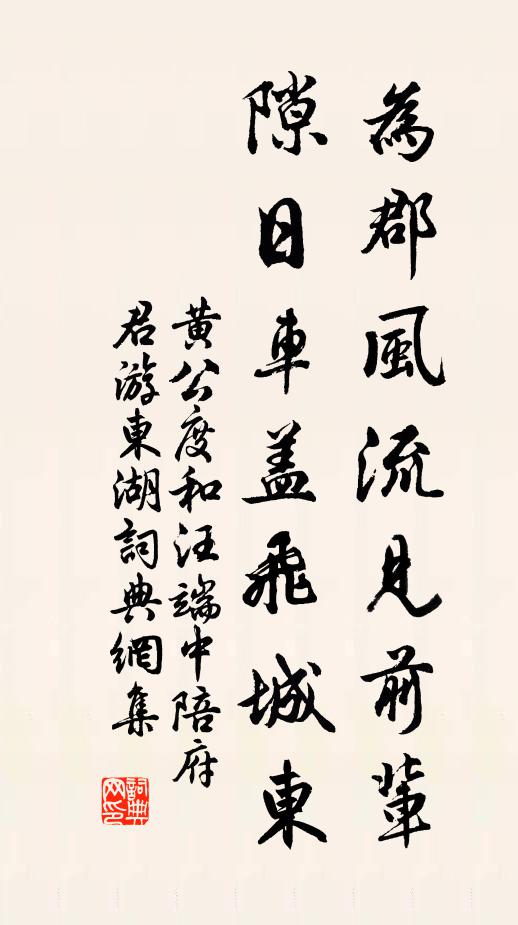 為郡風流見前輩
隙日車盖飛城東
黄公度和汪端中陪府
君游東湖詞典網集
詞典
网印